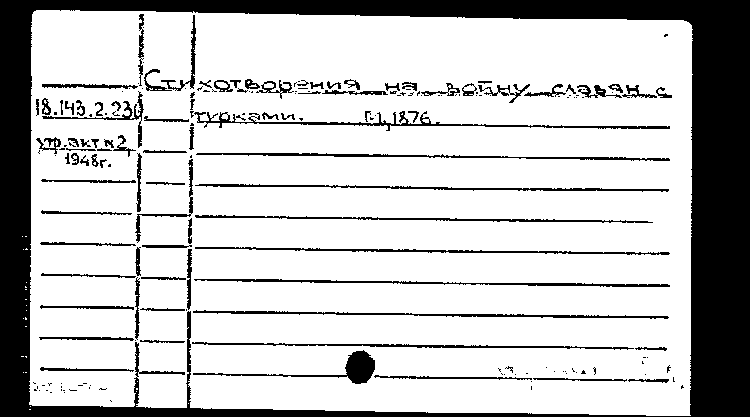 Стихотворения на войну славян с
18.143.2.230. турками. [-], 1876.
утр. акт N2
1948г.